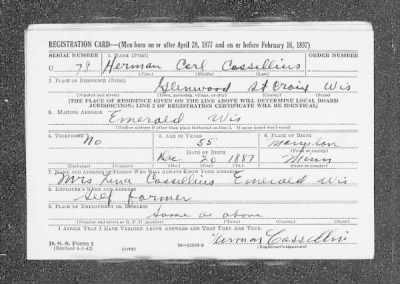 REGISTRATION CARD—(Men born on or after April 28, 1877 and on or before February 16, 1897)
SERIAL NUMBER 1. NAME (Print) ORDER NUMBER
U 78 Herman Carl Cassellius
(First) (Middle) (Last)
2. PLACE OF RESIDENCE (Print)
Glenwood St Croix Wis
(Number and street) (Town, township, village, or city) (County) (State)
[THE PLACE OF RESIDENCE GIVEN ON THE LINE ABOVE WILL DETERMINE LOCAL BOARD
JURISDICTION; LINE 2 OF REGISTRATION CERTIFICATE WILL BE IDENTICAL]
3. MAILING ADDRESS
Emerald Wis
[Mailing address if other than place indicated on line 2. If same insert word same]
4. TELEPHONE 5. AGE IN YEARS 6. PLACE OF BIRTH
No 55
DATE OF BIRTH (Town or county)
Dec 20 1887 Minn
(Exchange) (Number) (Mo.) (Day) (Yr.) (State or country)
7. NAME AND ADDRESS OF PERSON WHO WILL ALWAYS KNOW YOUR ADDRESS
Mrs Cassellius Emerald Wis
8. EMPLOYER'S NAME AND ADDRESS
Self farmer
9. PLACE OF EMPLOYMENT OR BUSINESS
Same as above
(Number and street or R. F. D. number) (Town) (County) (State)
I AFFIRM THAT I HAVE VERIFIED ABOVE ANSWERS AND THAT THEY ARE TRUE.
D. S. S. Form 1
(Revised 4-1-42) Herman Cassellius
(Registrant's signature)